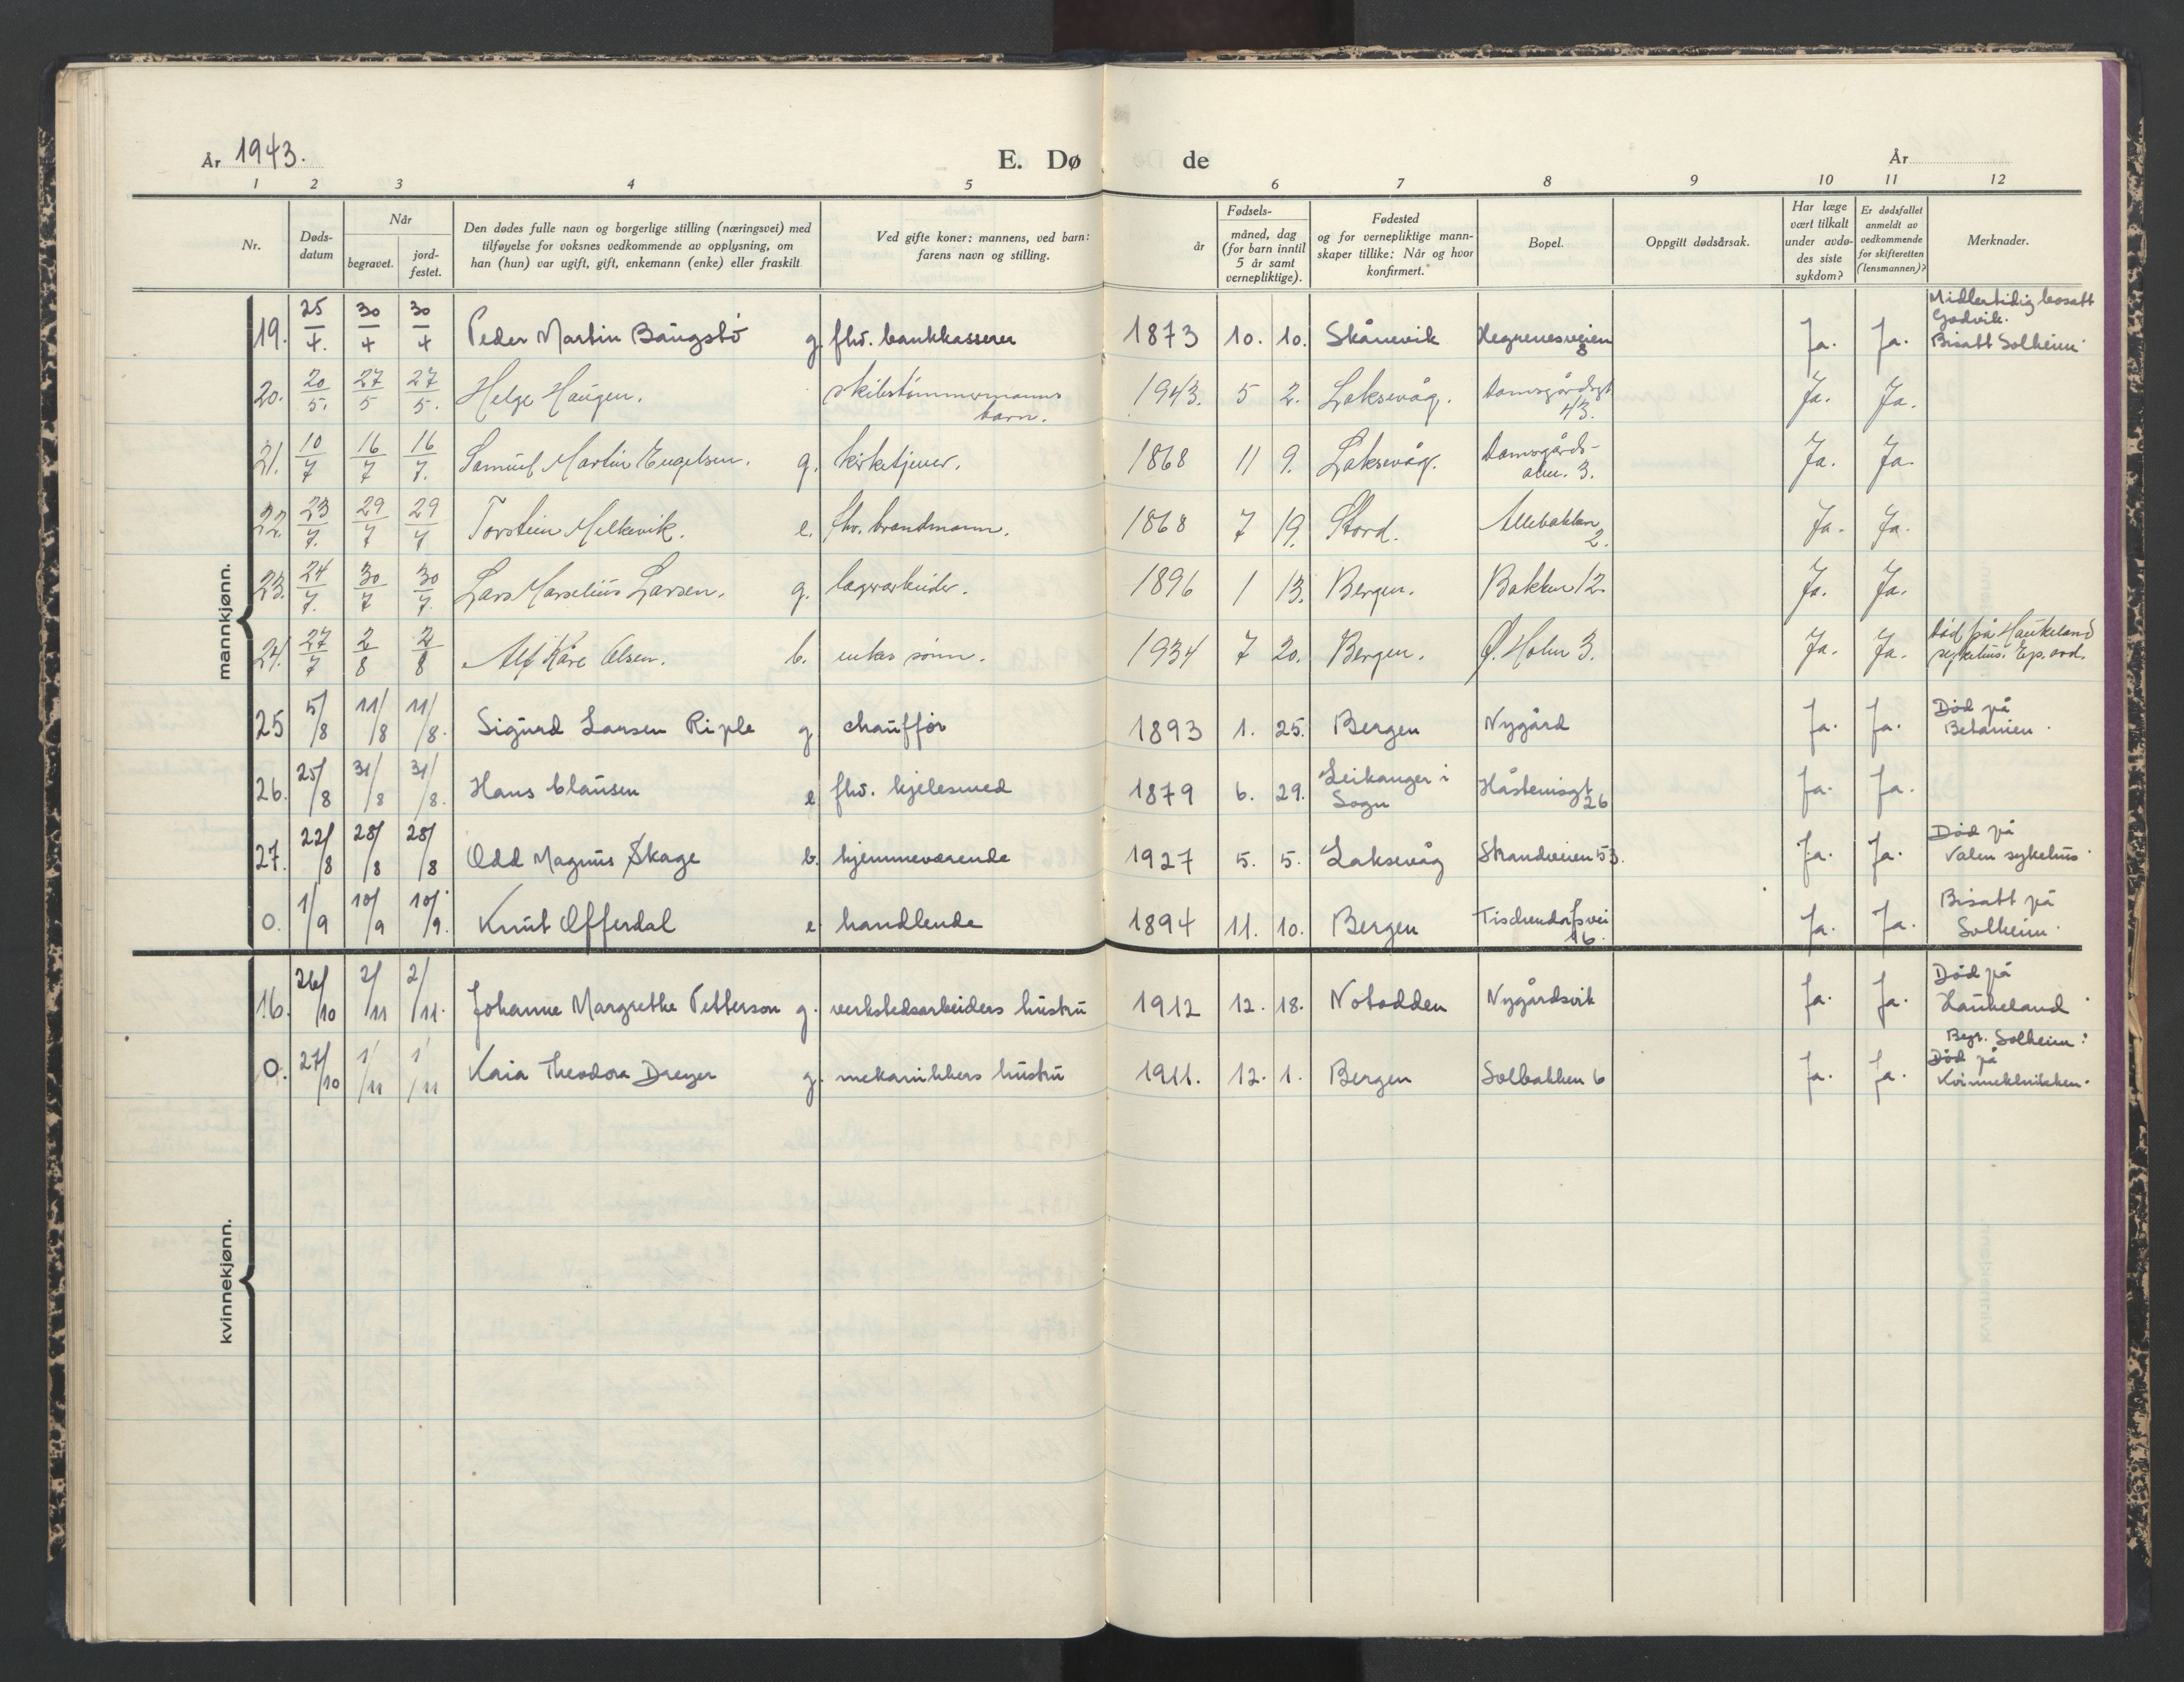 År 1943. E. Dø de År
1 2 3 4 5 6 7 8 9 10 11 12
Nr. Døds-datum Når begravet. jord-festet. Den dødes fulle navn og borgerlige stilling (næringsvei) med tilføyelse for voksnes vedkommende av opplysning, om han (hun) var ugift, gift, enkemann (enke) eller fraskilt Ved gifte koner: mannens, ved barn: farens navn og stilling. år Fødsels- måned, dag (for barn inntil 5 år samt vernepliktige). Fødested og for vernepliktige mann-skaper tillike: Når og hvor konfirmert. Bopel. Oppgitt dødsårsak. Har læge vært tilkalt under avdø-des siste sykdom? Er dødsfallet anmeldt av vedkommende for skifteretten (lensmannen)? Merknader.
mannkjønn.
19. 25/4. 30/4 30/4 Peder Martin Baugstø g. fhv. bankkasserer 1873 10. 10. Skånevik Hegrenesveien 8 Ja. Ja. Midlertidig bosatt Godvik. Bisatt Solheim
20. 20/5. 27/5 27/5. Helge Haugen. skibstømmermanns barn. 1943. 5 2. Laksevåg. Damsgårdsgt 43. Ja. Ja.
21. 10/7 16/7 16/7. Samuel Martin Engelsen. g. kirketjener. 1868 11 9. Laksevåg. Damsgårds-alm. 3. Ja. Ja.
22. 23/7. 29/7 29/7 Torstein Melkevik. e. fhv. brandmann. 1868 7 19. Stord. Allebakken 2. Ja. Ja.
23. 24/7. 30/7 30/7. Lars Marselius Larsen. g. lagerarbeider. 1896 1 13. Bergen. Bakken 12. Ja. Ja.
24. 27/7 2/8 2/8 Alf Kåre Olsen. b. enkes sønn. 1934 7 20. Bergen. Ø. Holm 3. Ja. Ja. Død på Haukeland sykehus. Ep. avd.
25 5/8 11/8 11/8. Sigurd Larsen Riple g chauffør 1893 1. 25. Bergen Nygård Ja. Ja. Død på Betanien.
26. 25/8 31/8 31/8. Hans Clausen e fhv. kjelesmed 1879 6. 29. Leikanger i Sogn Håsteinsgt 26 Ja. Ja.
27. 22/8 28/8 28/8 Odd Magnus Skage b. hjemmeværende 1927 5. 5. Laksevåg Strandveien 53. Ja. Ja. Død på Valen sykehus.
0. 1/9 10/9 10/9. Knut Offerdal e handlende 1894 11. 10. Bergen Tischendorfsvei 16. Ja. Ja. Bisatt på Solheim.
kvinnekjønn.
16. 26/10 2/11 2/11. Johanne Margrethe Petterson g. verkstedsarbeiders hustru 1912 12. 18. Notodden Nygårdsvik Ja. Ja. Død på Haukeland
0. 27/10 1/11 1/11 Kaia Theodora Dreyer g. mekanikkers hustru 1911. 12. 1. Bergen Solbakken 6 Ja. Ja. Begr. Solheim. Død på Kvinneklinikken.